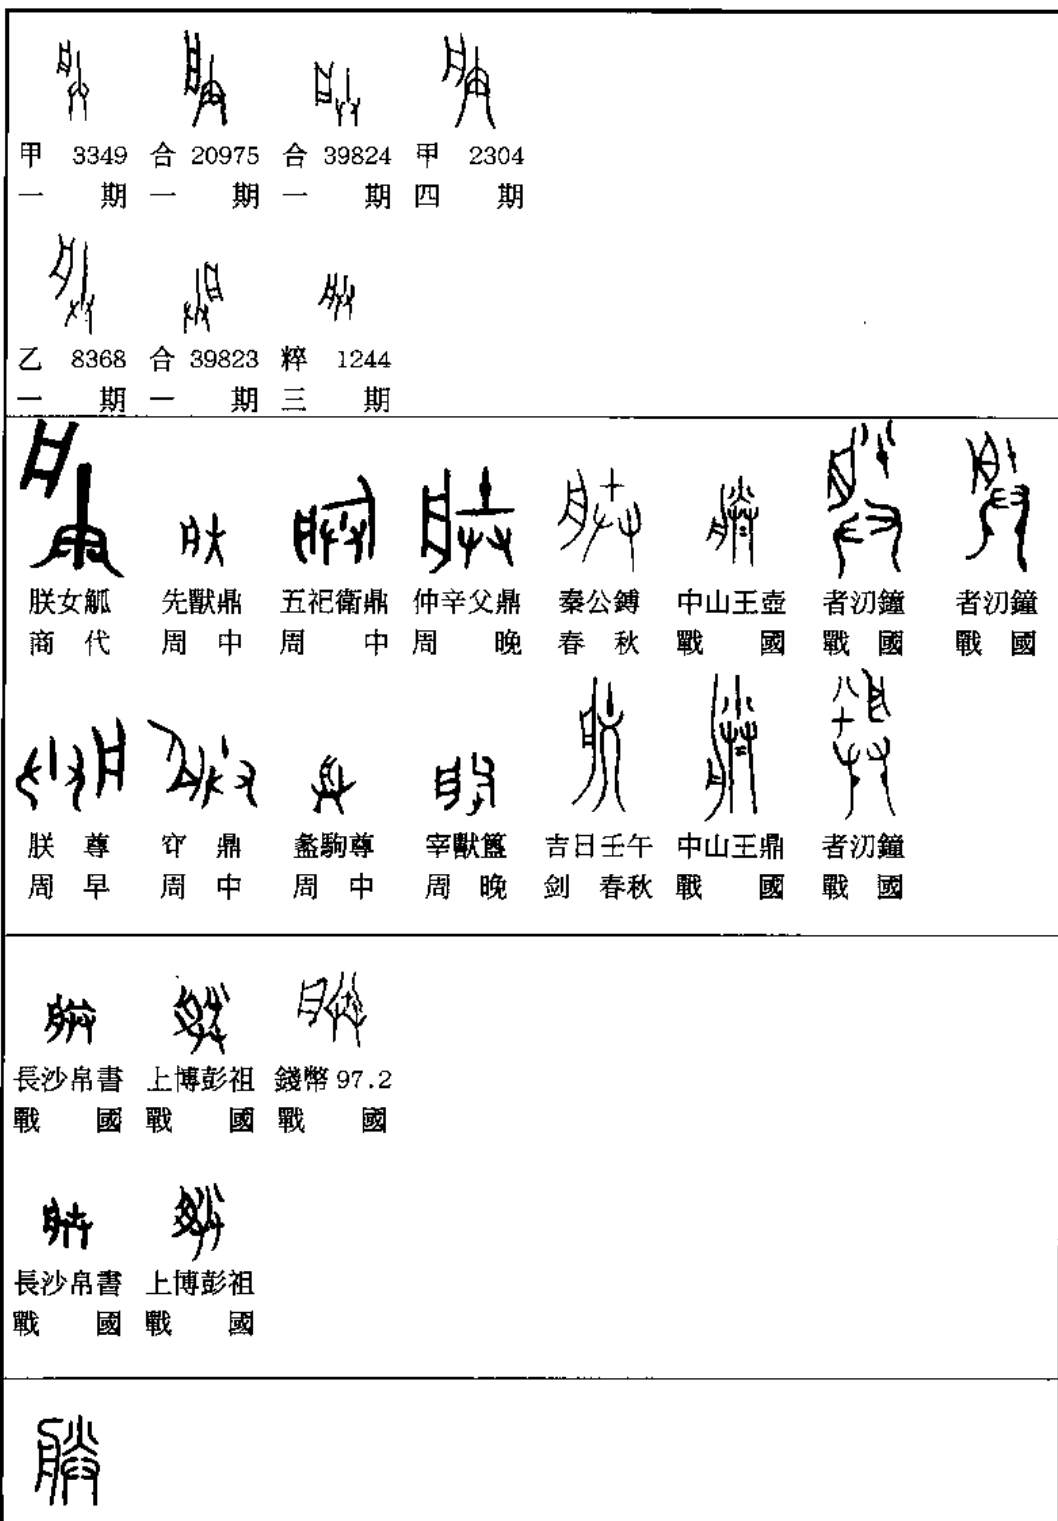 甲 3349 合 20975 合 39824 甲 2304
一 期 一 期 一 期 四 期
乙 8368 合 39823 粹 1244
一 期 一 期 三 期
朕女觚 先獸鼎 五祀衛鼎 仲辛父鼎 秦公鎛 中山王壺 者汈鐘 者汈鐘
商代 周中 周中 周晚 春秋 戰國 戰國 戰國
朕尊 鼎 盠駒尊 宰獸簋 吉日壬午 中山王鼎 者汈鐘
周早 周中 周中 周晚 剑 春秋 戰國 戰國
長沙帛書 上博彭祖 錢幣 97.2
戰國 戰國 戰國
長沙帛書 上博彭祖
戰國 戰國